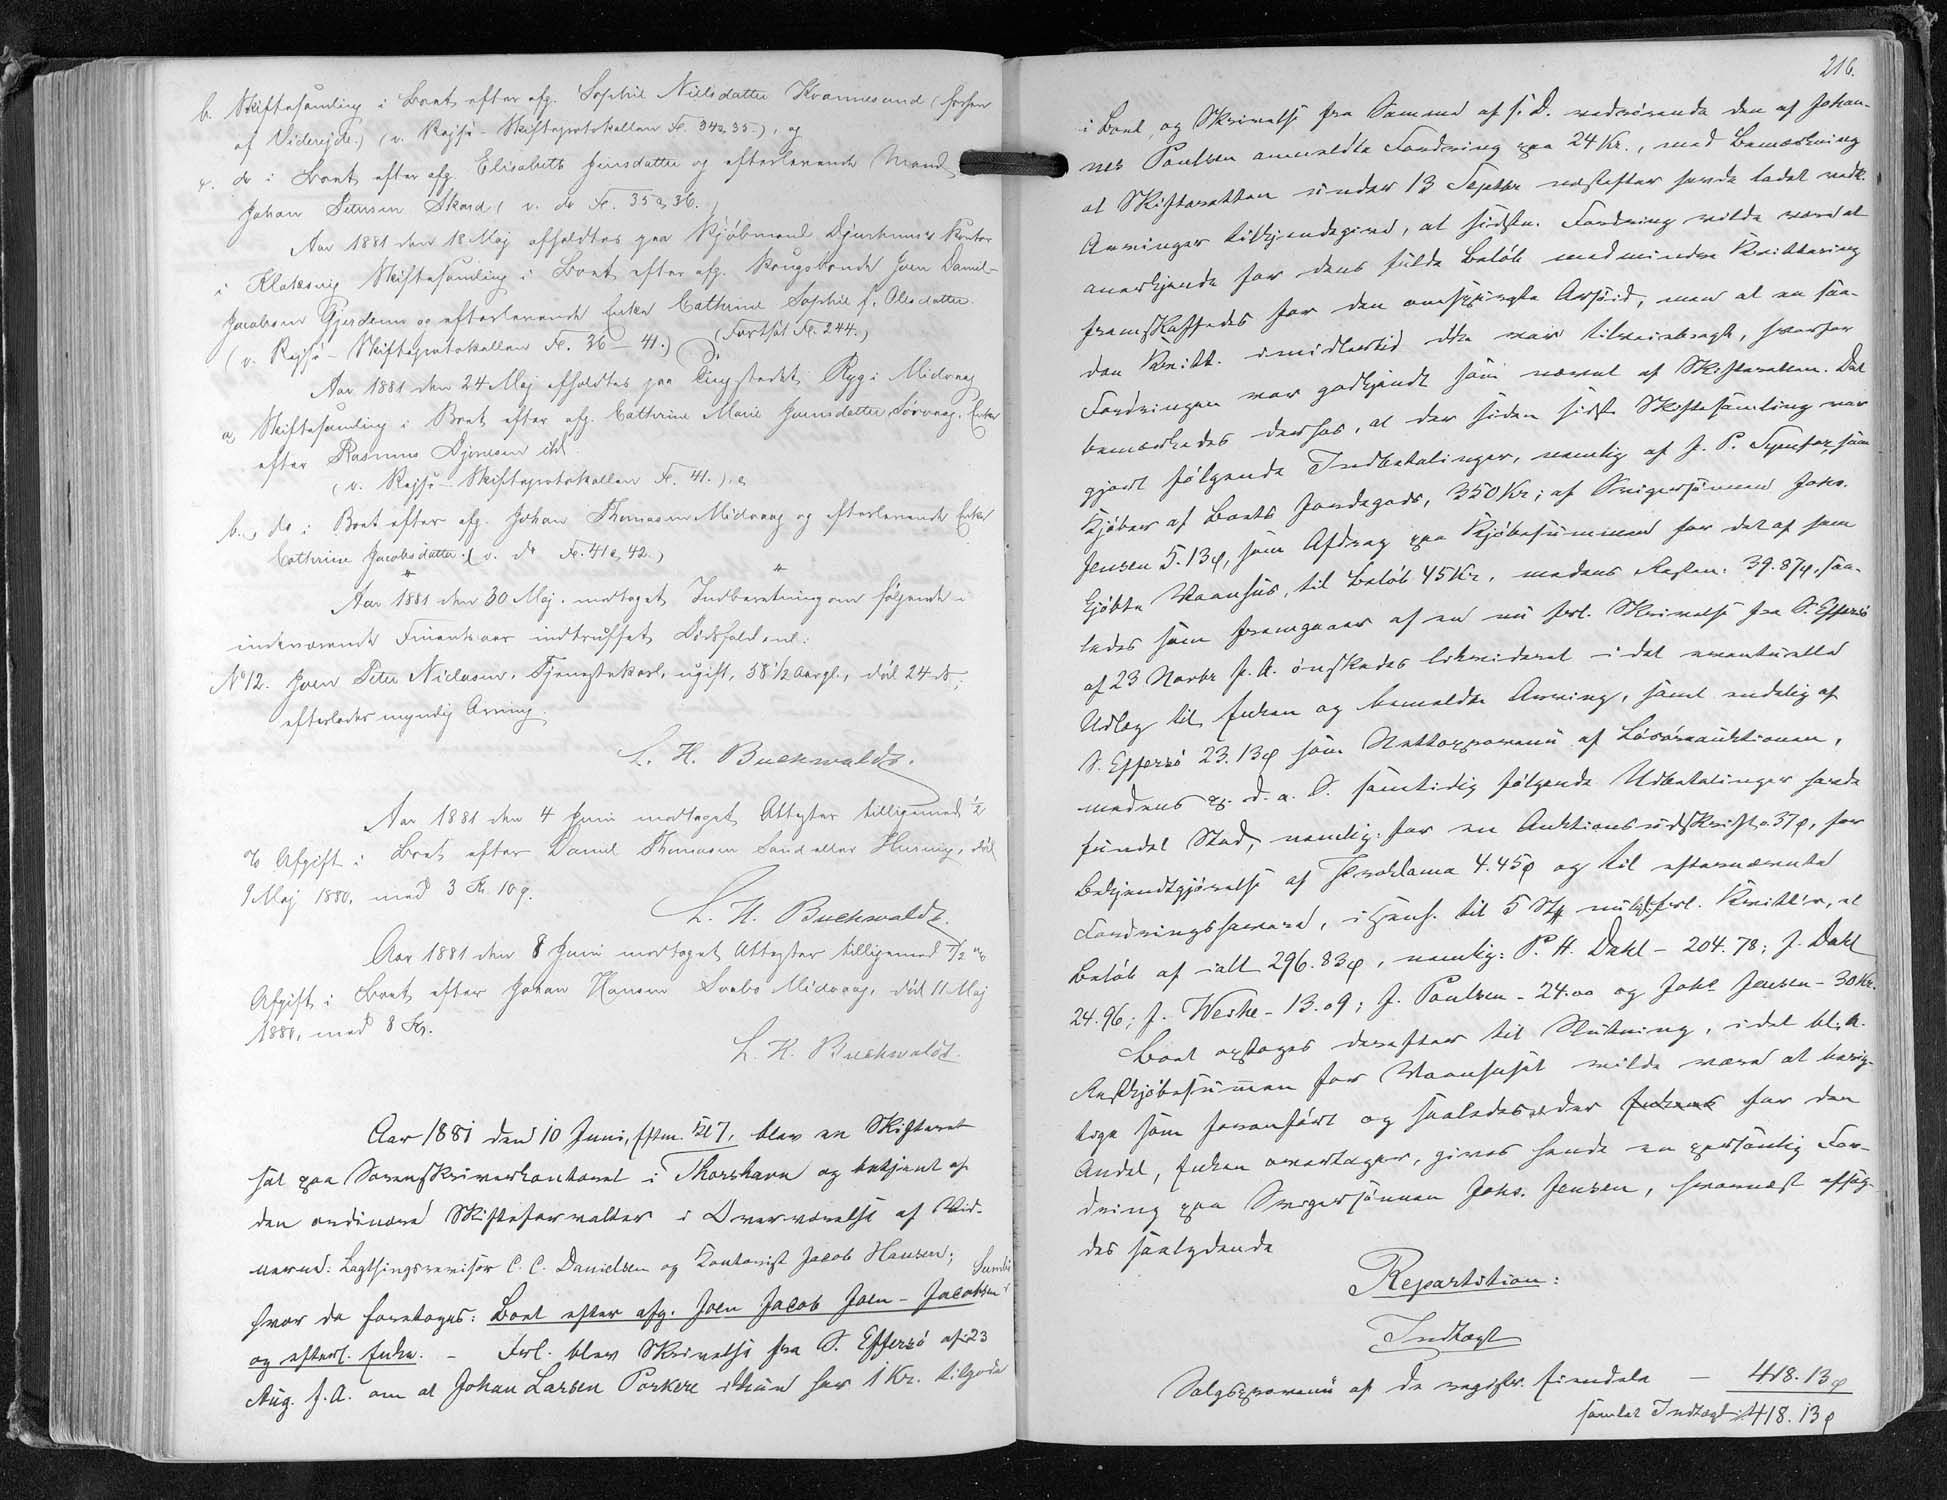 b. Skiftesamling i Boet efter afg. Sophie Nielsdatter Kvannesund (
af Viderejde.) (v. Rejse-Skifteprotokollen Fo. 34 & 35.), og
c. do i Boet efter afg. Elisabeth Jensdatter og efterlevende Mand
Johan Petersen Skaard (v. do Fo. 35 & 36.
Aar 1881 den 18 Maj afholdtes paa Kjøbmand Djurhuus's Kontor
i Klaksvig Skiftesamling i Boet efter afg. Kongsbonde Joen Daniel
Jacobsen Gjerdene og efterlevende Enke Cathrine Sophie f. Olesdatter.
(v. Rejse-Skifteprotokollen Fo. 36 – 41.) (Fortsat Fo. 244.)
Aar 1881 den 24 Maj afholdtes paa Tingstedet Ryg i Midvaag
a, Skiftesamling i Boet efter afg. Cathrine Marie Joensdatter Sørvaag, Enke
efter Rasmus ibd.
(v. Rejse-Skifteprotokollen Fo. 41.), &
b., do i Boet efter afg. Johan Thomasen Midvaag og efterlevende Enke
Cathrine Jacobsdatter. (v. do Fo. 41 & 42.)
Aar 1881 den 30 Maj. modtaget Indberetning om følgende i
indeværende Finantsaar indtruffet Dødsfald, nl:
No 12. Joen Peter Niclasen, Tjenestekarl, ugift, 58 1/2 Aar gl., død 24 ds,
efterlader myndig Arving.
L. H. Buchwaldt.
Aar 1881 den 4 Juni modtaget Attester tilligemed 1/2
% Afgift i Boet efter Daniel Thomasen Sand eller Husvig, død
9 Maj 1880, med 3 Kr. 10 ø.
L. H. Buchwaldt.
Aar 1881 den 8 Juni modtaget Attester tilligemed 1/2 %
Afgift i Boet efter Johan Hansen Midvaag, død 11 Maj
1880, med 8 Kr.
L. H. Buchwaldt.
Aar 1881 den 10 Juni, Eftm. Kl 7, blev en Skifteret
sat paa Sorenskriverkontoret i Thorshavn og betjent af
den ordinære Skifteforvalter i Overværelse af Vid-
nerne: Lagthingsrevisor C. C. Danielsen og Kontorist Jacob Hansen;
hvor da foretoges: Boet efter afg. Joen Jacob Joen-Jacobsen Sumbø
og efterl. Enke. – Frl. blev Skrivelse fra S. Effersø af 23
Aug. f. A. om at Johan Larsen Porkere ikkun har 1 Kr. tilgode
216.
i Boet, og Skrivelse fra Samme af s. D. vedrørende den af Johan-
nes Poulsen anmeldte Fordring paa 24 Kr., med Bemærkning
at Skifteretten under 13 Septbr næstefter havde ladet vedk.
Arvinger tilkjendegive, at sidstn. Fordring vilde være at
anerkjende for dens fulde Beløb medmindre Kvittering
fremskaffedes for den omspurgte Arbejd, men at en saa-
dan Kvitt. imidlertid ikke var tilveiebragt, hvorfor
Fordringen var godkjendt som nævnt af Skifteretten. Det
bemærkedes derhos, at der siden sidste Skiftesamling var
gjort følgende Indbetalinger, nemlig af J. P. som
Kjøber af Boets Jordegods, 350 Kr; af Svigersønnen Johs.
Jensen 5.13ø, som Afdrag paa Kjøbesummen for det af ham
kjøbte Vaanhus, til Beløb 45 Kr, medens Resten: 39.87ø, saa-
ledes som fremgaaer af en nu frl. Skrivelse fra S. Effersø
af 23 Novbr f. A. ønskedes likvideret i det eventuelle
Udlæg til Enken og bemeldte Arving, samt endelig af
S. Effersø 23.13ø som Nettoprovenu af Løsøreauktionen,
medens p. d. a. S. samtidig følgende Udbetalinger havde
fundet Sted, nemlig: for en Auktionsudskrift 37ø, for
Bekjendtgjørelse af Proklama 4.45ø og til efternævnte
Fordringshavere, i Henh. til 5 Stk frl. Kvitt'er, et
Beløb af ialt 296.83ø, nemlig: P. H. Dahl – 204.78; J. Dahl
24.96; J. Weihe – 13.09; J. Poulsen – 24.00 og Johs Jensen – 30 Kr.
Boet optoges derefter til Slutning, idet bl. a.
Restkjøbesummen for Vaanhuset vilde være at berig-
tige som foranført og saaledes der Enkens for den
Andel, Enken overtager, gives hende en personlig For-
dring paa Svigersønnen Johs. Jensen, hvornæst afsig-
des saalydende
Repartition:
Indtægt
Salgsprovenu af de registr. Eiendele – 418.13ø
samlet Indtægt: 418.13ø